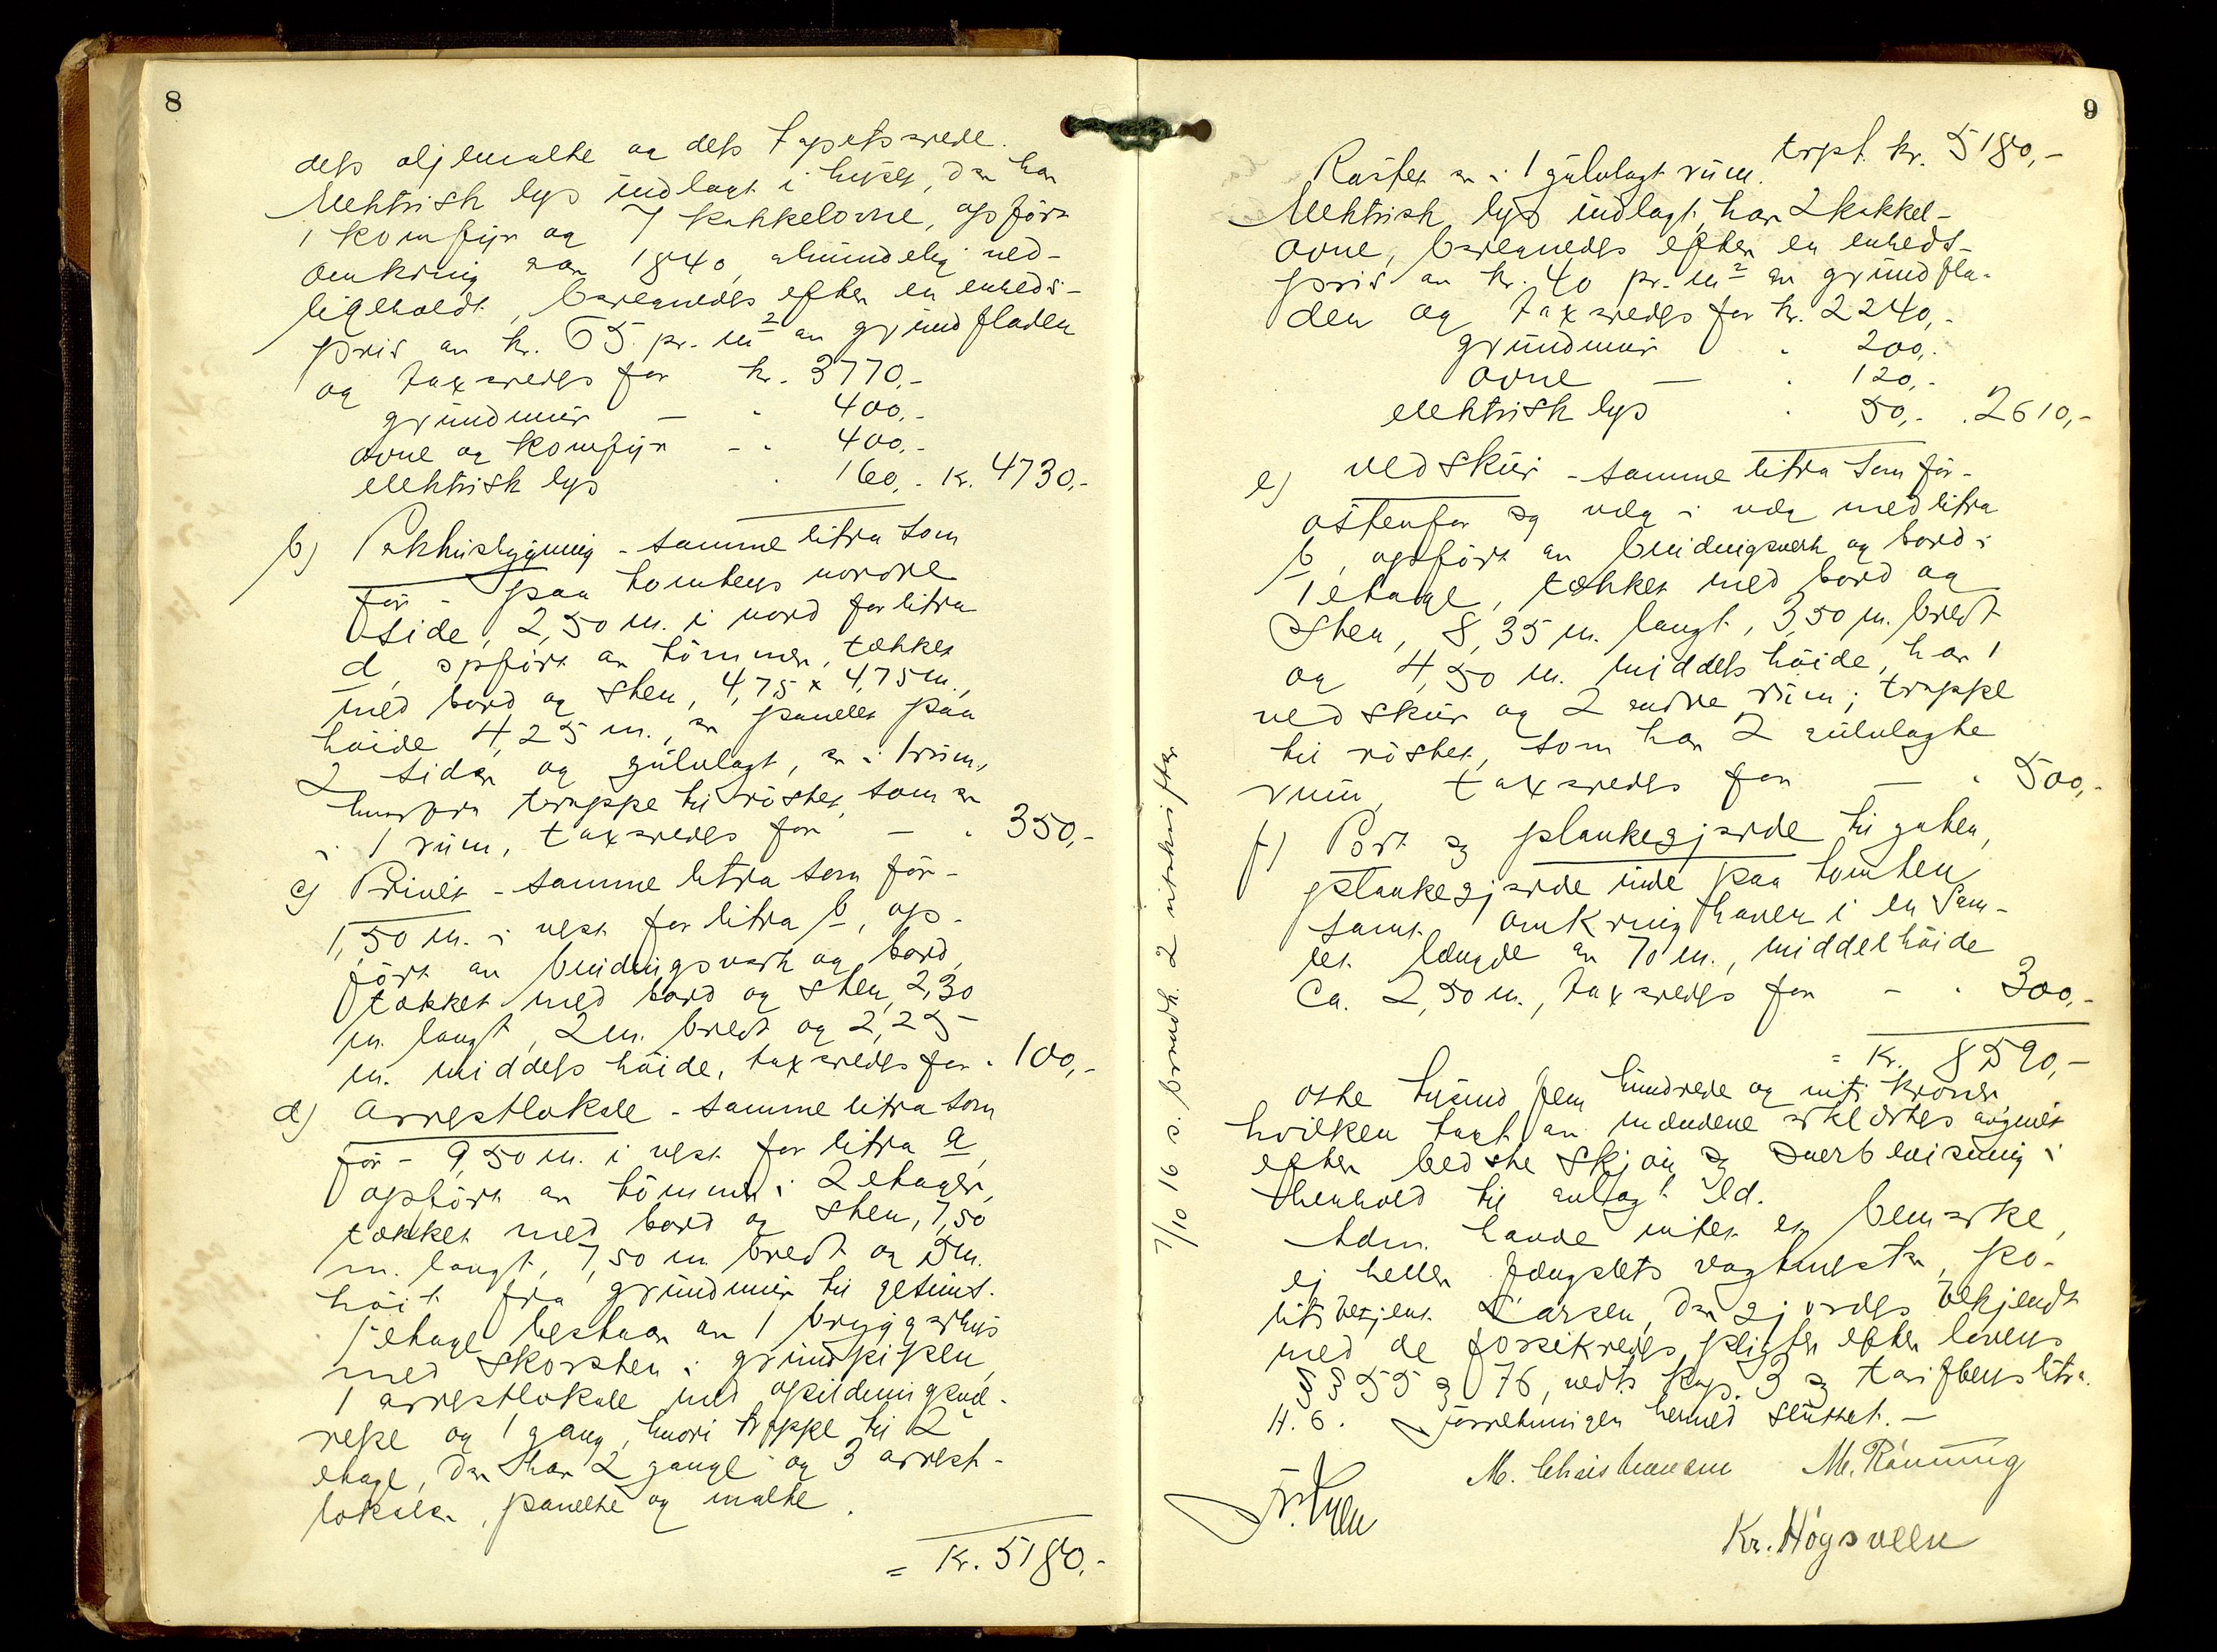 8
dels oljemalte og dels tapetserede.
Elektrisk lys indlagt i huset, der har
1 komfyr og 7 kakkelovne, opført
omkring aar 1840, almindelig ved-
ligeholdt, beregnedes efter en enheds-
pris av kr. 65 pr. m² av grundfladen
og taxeredes for kr. 3770,-
grundmur — " 400,-
ovne og komfyr - " 400,-
elektrisk lys " 160,- kr. 4730,-
b) Pakhusbygning - samme litra som
før - paa tomtens nordre
side, 2,50 m. i nord for litra
d, opført av tømmer, tækket
med bord og sten, 4,75 x 4,75 m.,
høide 4,25 m., er panelet paa
2 sider og gulvlagt, er i 1 rum,
hvorfra trappe til røstet, som er
i 1 rum, taxeredes for — " 350,-
c) Privet - samme litra som før -
1,50 m. i vest for litra b, op-
ført av bindingsverk og bord,
tækket med bord og sten, 2,30
m. langt, 2 m. bredt og 2,25
m. middels høide, taxeredes for " 100,-
d) Arrestlokale - samme litra som
før - 9,50 m. i vest for litra a,
opført av tømmer i 2 etager,
tækket med bord og sten, 7,50
m. langt, 7,50 m. bredt og 5 m.
høit fra grundmur til gesims.
1 etage bestaar av 1 bryggerhus
med skorsten i grundpipen,
1 arrestlokale med opildningsind-
og 1 gang, hvori trappe til 2
etage, der har 2 gange og 3 arrest-
lokaler, panelte og malte.
= Kr. 5180,-
9
trpt. kr. 5180,-
Røstet er i 1 gulvlagt rum.
Elektrisk lys indlagt, har 2 kakkel-
ovne, beregnedes efter en enheds-
pris av kr. 40 pr. m² av grundfla-
den og taxeredes for kr. 2240,-
grundmur " 200,-
ovne — " 120,-
elektrisk lys " 50,- " 2610,-
e) Vedskur - samme litra som før -
østenfor og væg i væg med litra
b, opført av bindingsverk og bord i
1 etage, tækket med bord og
sten, 8,35 m. langt, 3,50 m. bredt
og 4,50 m. middels høide, har 1
vedskur og 2 andre rum; trappe
til røstet, som har 2 gulvlagte
rum, taxeredes for — " 500,-
f) Port og plankegjærde til gaten,
plankegjærde inde paa tomten
samt omkring haven i en sam-
let længde av 70 m., middelhøide
ca. 2,50 m., taxeredes for - " 300,-
= Kr. 8590,-
otte tusind fem hundrede og niti kroner,
hvilken taxt av mændene erklærtes avgivet
efter bedste skjøn og overbevisning i
henhold til avlagt ed.
Adm. havde intet at bemærke,
ej heller fængslets vagtmester, po-
litibetjent Larsen, der gjordes bekjendt
med de forsikredes pligter efter lovens
§§ 55 og 76, vedt. kap. 3 og tariffens litra
H. 6. Forretningen hermed sluttet. —
M. Christiansen M. Rønning
Kr. Høgsveen
7/10 16 s. brandk. 2 utskrifter